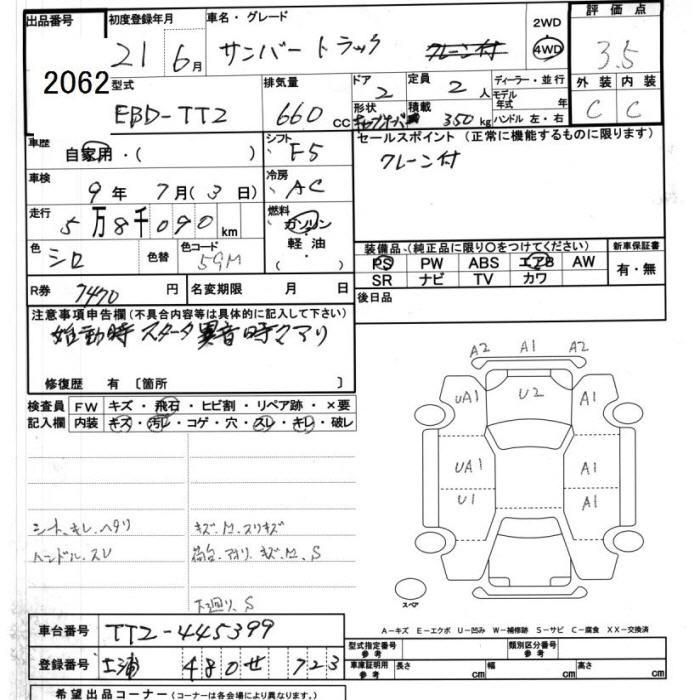 出品番号 初度登録年月 車名・グレード 2WD 評価点
2062 21 6月 サンバートラック クレーン付 4WD 3.5
型式 排気量 ドア 定員 ディーラー・並行 外装 内装
EBD-TT2 660 CC 2 2人 モデル年式 年 C C
形状 積載 350kg ハンドル 左・右
車歴 自家用・( ) シフト F5 セールスポイント(正常に機能するものに限ります)
クレーン付
車検 9年 7月( 3日) 冷房 AC
走行 5万8千090km 燃料 ガソリン・軽油・( )
色 シロ 色替 色コード 59M
装備品、(純正品に限り○をつけてください) 新車保証書
PS PW ABS エアB AW 有・無
SR ナビ TV カワ
R券 7470円 名変期限 月 日 後日品
注意事項申告欄(不具合内容等は具体的に記入して下さい)
始動時 スタータ異音時々アリ
修復歴 有 〔箇所 〕
検査員 FW キズ・飛石・ヒビ割・リペア跡・×要
記入欄 内装 キズ・汚レ・コゲ・穴・スレ・キレ・破レ
A2 A1 A2
UA1 U2 A1
UA1 A1
U1 A1
シート、キレ、ヘタリ キズ、M、スリキズ
ハンドル、スレ 荷台、アオリ、キズ、M、S
下廻リ、S
スペア
A−キズ E−エクボ U−凹み W−補修跡 S−サビ C−腐食 XX−交換済
車台番号 TT2-445399
型式指定番号 参考 類別区分番号 参考
登録番号 土浦 480 せ 723
車庫証明用 参考 長さ cm 幅 cm 高さ cm
希望出品コーナー(コーナーは各会場により異なります。)